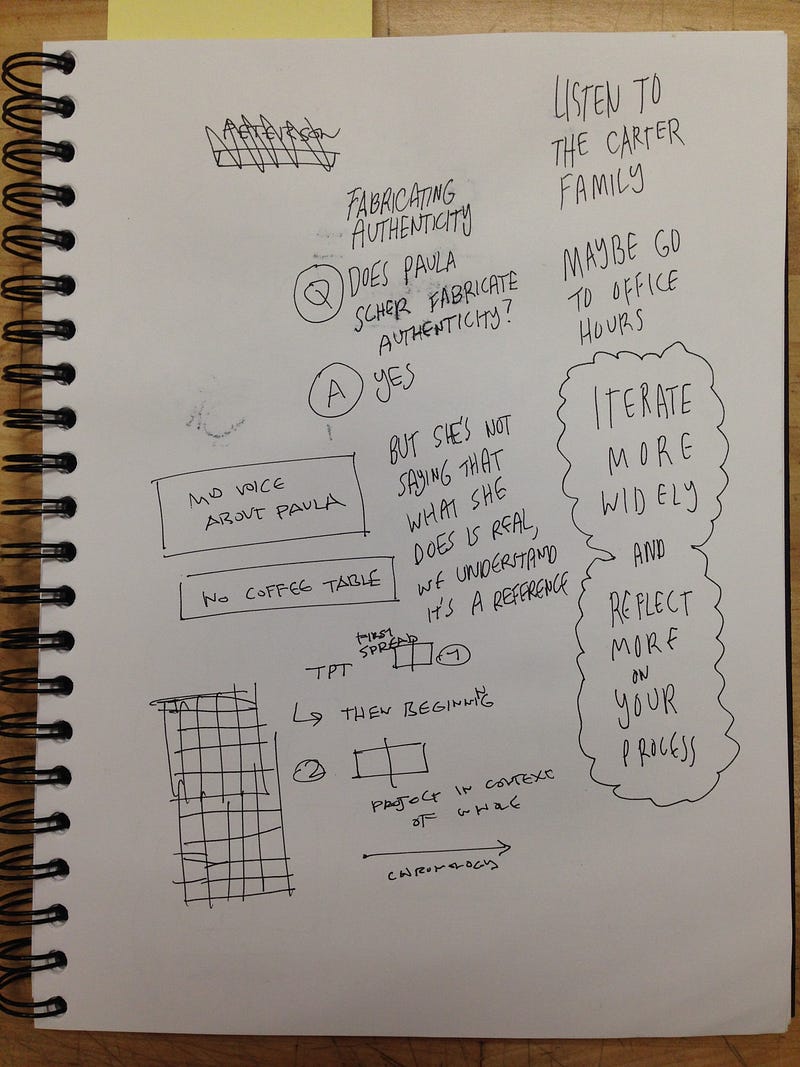 FABRICATING
AUTHENTICITY
Q DOES PAULA
SCHER FABRICATE
AUTHENTICITY?
A YES
BUT SHE'S NOT
SAYING THAT
WHAT SHE
DOES IS REAL,
WE UNDERSTAND
IT'S A REFERENCE
VOICE
ABOUT PAULA
NO COFFEE TABLE
FIRST
SPREAD
TPT
THEN BEGINNING
2
PROJECT IN CONTEXT
OF WHOLE
CHRONOLOGY
LISTEN TO
THE CARTER
FAMILY
MAYBE GO
TO OFFICE
HOURS
ITERATE
MORE
WIDELY
AND
REFLECT
MORE
ON
YOUR
PROCESS